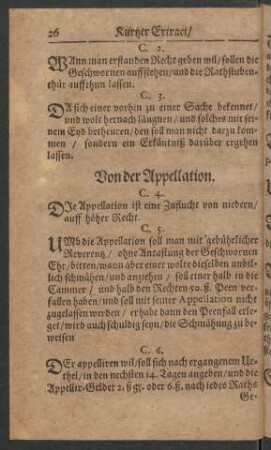 26 Kurtzer Extract/
C. 2.
WAnn man erstanden Recht geben wil/ sollen die
Geschwornen auffstehen/ und die Rathstuben-
thür auffthun lassen.
C. 3.
DA sich einer vorhin zu einer Sache bekennet/
und wolt hernach läugnen/ und solches mit sei-
nem Eyd betheuren/ den soll man nicht darzu kom-
men / sondern ein Erkäntniß darüber ergehen
lassen.
Von der Appellation.
C. 4.
DIe Appellation ist eine Zuflucht von niedern/
auff höher Recht.
C. 5.
UMb die Appellation soll man mit gebührlicher
Reverentz / ohne Antastung der Geschwornen
Ehr/ bitten/ wann aber einer wolte dieselben unbil-
lich schmähen/ und anziehen / soll einer halb in die
Cammer / und halb den Rechten 50. ß. Peen ver-
fallen haben/ und soll mit seiner Appellation nicht
zugelassen werden / er habe dann den Peenfall erle-
get/ wird auch schuldig seyn/ die Schmähung zu be-
weisen
C. 6.
DEr appelliren wil/ soll sich nach ergangenem Ur-
thel/ in den nechsten 14. Tagen angeben/ und die
Appellir-Gelder 2. ß gr. oder 6. ß. nach jedes Raths
Ge-